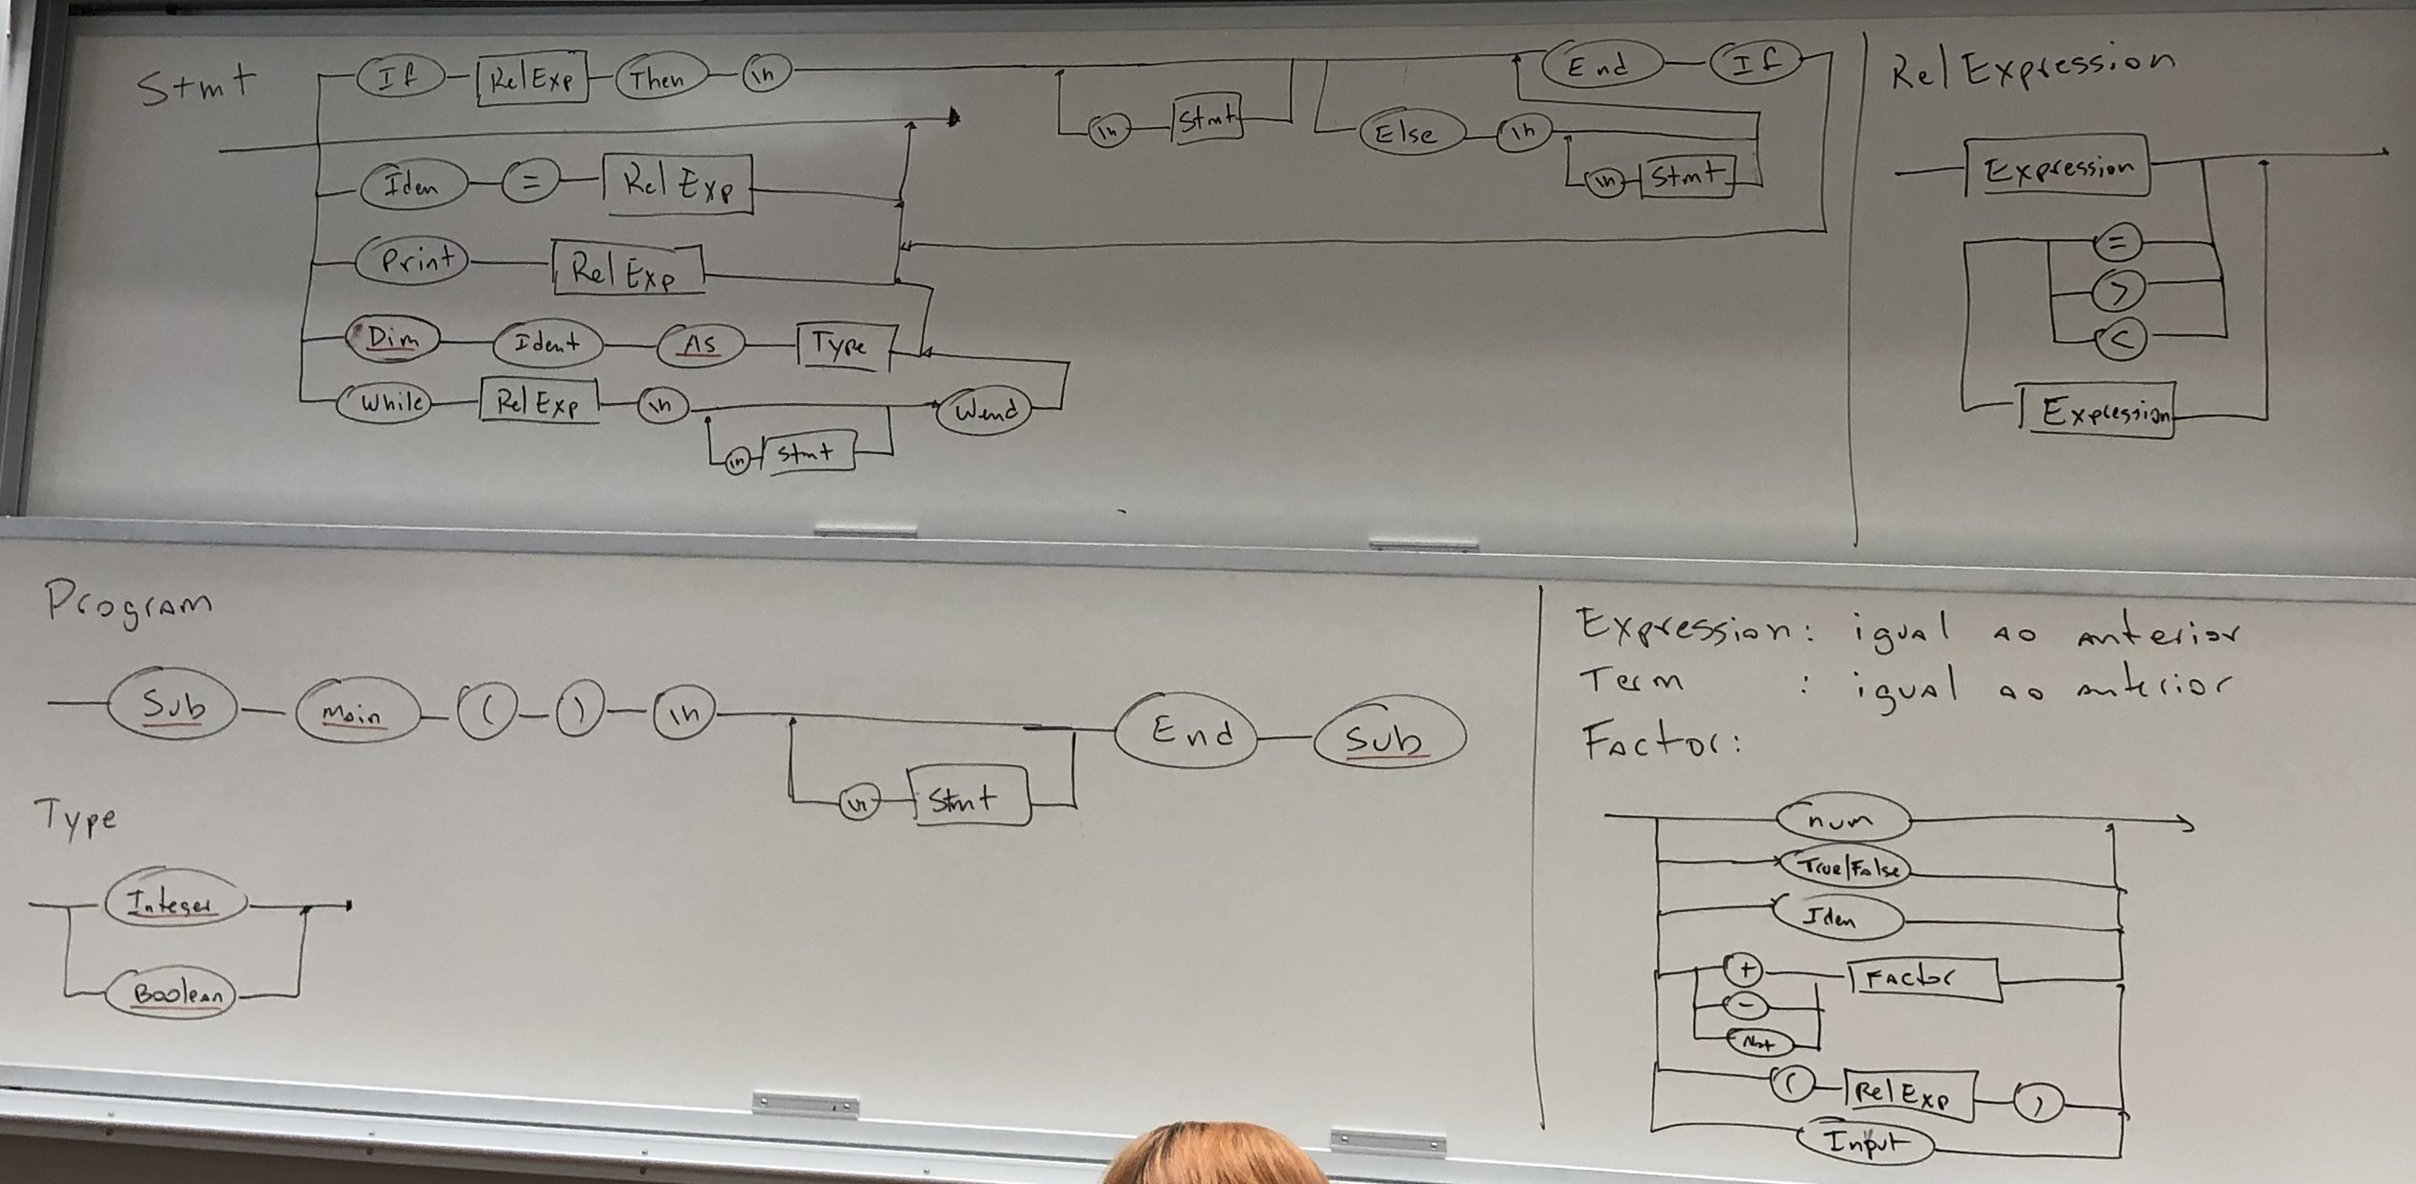 Stmt
If RelExp Then \n End If
\n Stmt Else \n
\n Stmt
Iden = Rel Exp
Print Rel Exp
Dim Ident As Type
While Rel Exp \n Wend
\n Stmt
Rel Expression
Expression
=
>
<
Expression
Program
Sub Main ( ) \n End Sub
\n Stmt
Type
Integer
Boolean
Expression: igual ao anterior
Term : igual ao anterior
Factor:
num
True/False
Iden
+ Factor
-
Not
( Rel Exp )
Input